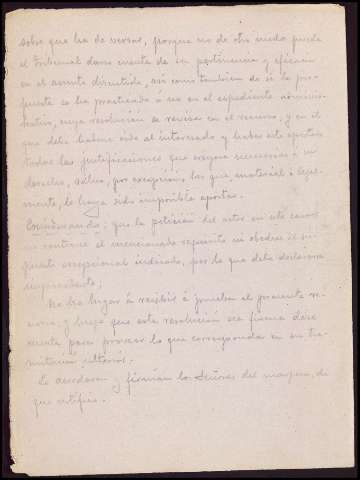 sobre que ha de versar, porque no de otro modo puede
el tribunal darse cuenta de su pertinencia y eficacia
en el asunto discutido, así como tambien de si la pro-
puesta se ha practicado ó no en el expediente adminis-
trativo, cuya resolucion se revisa en el recurso, y en el
que debe haberse oido al interesado y haber este aportado
todas las justificaciones que creyera necesarias á su
derecho, salvo, por excepción, las que material ó legal-
mente, le haya sido imposible aportar.
Considerando: que la petición del actor en este caso
no contiene el mencionado requisito ni obedece al su-
puesto excepcional indicado, por lo que debe declararse
improcedente;
No ha lugar á recibir á prueba el presente re-
curso, y luego que esta resolución sea firme dése
cuenta para proveer lo que corresponda en su tra-
mitación ulterior.
Lo acordaron y firman los Señores del margen, de
que certifico.